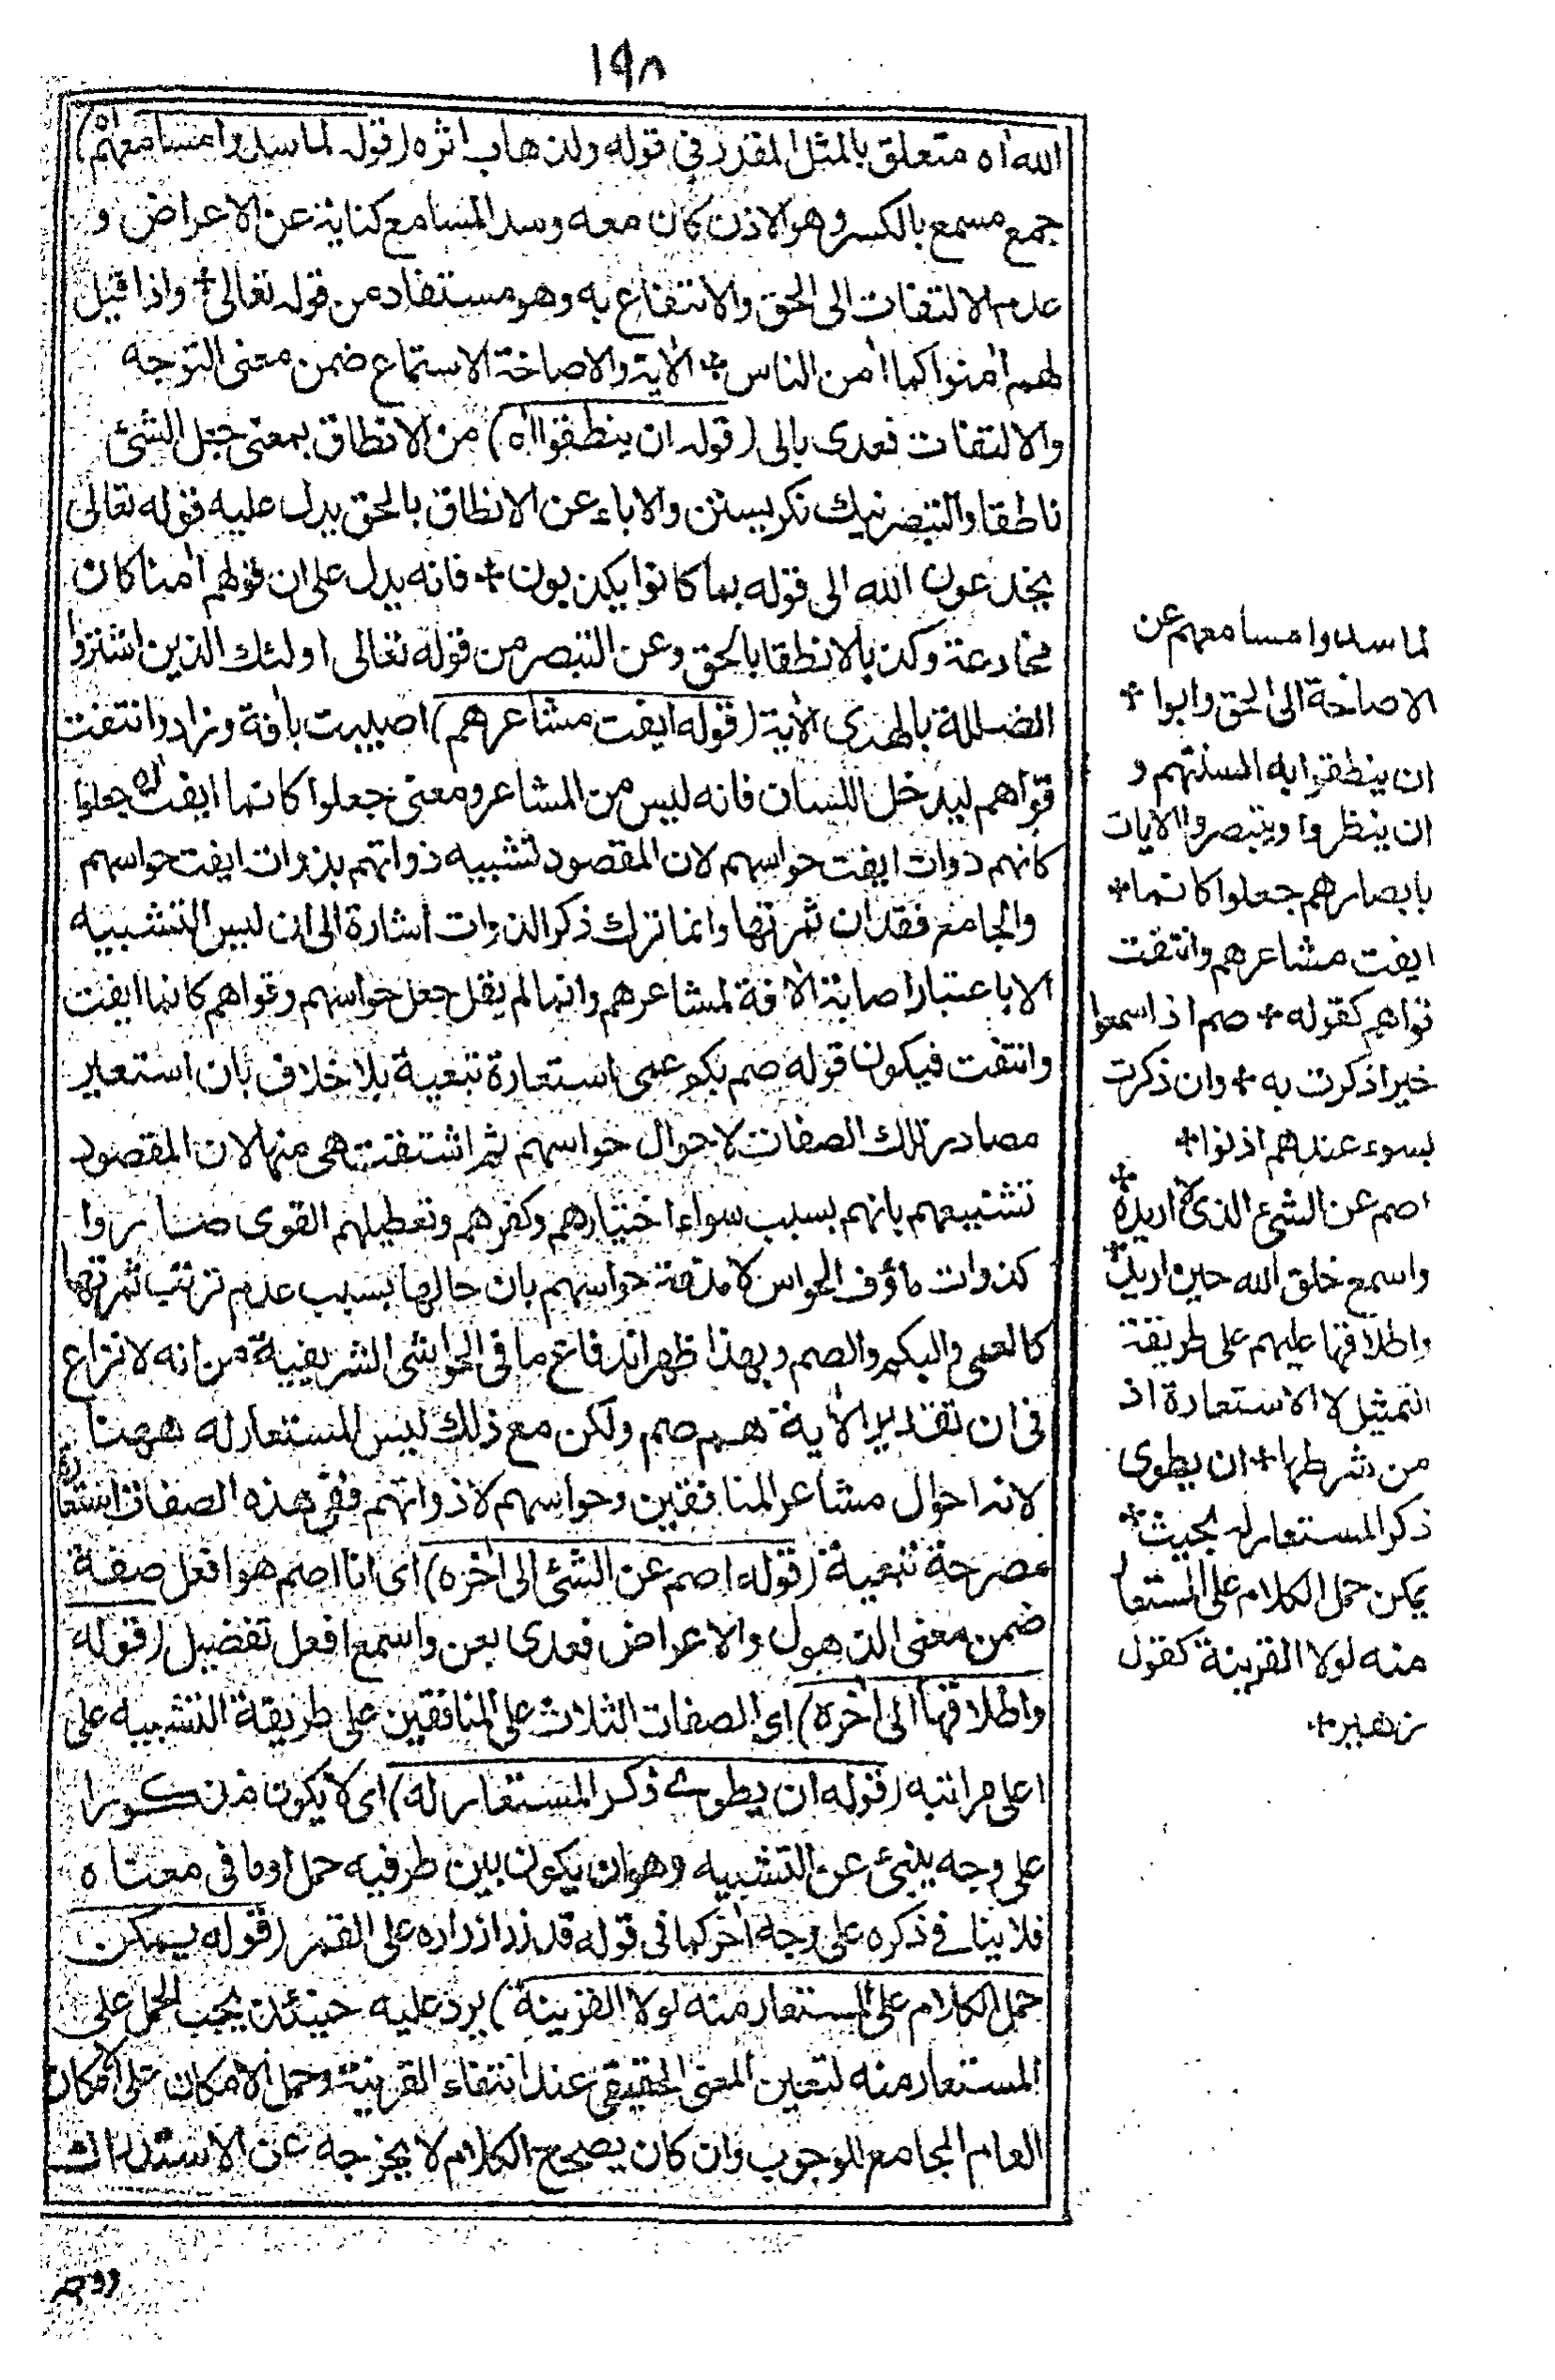 ١٩٨
الله اه متعلق بالمثل المقدر في قوله ولذهاب اثره (قوله لما سدوا مسامعهم اه)
جمع مسمع بالكسر وهو الاذن كان معه وسد المسامع كناية عن الاعراض و
عدم الالتفات الى الحق والانتفاع به وهو مستفاد من قوله تعالى + واذا قيل
لهم أمنوا كما أمن الناس + الأية والاصاخة الاستماع ضمن معنى التوجه
والالتفات فعدى بالى (قوله ان ينطقوا اه) من الانطاق بمعنى جعل الشئ
ناطقا والتبصر نيك نكريستن والاباء عن الانطاق بالحق يدل عليه قوله تعالى
يخدعون الله الى قوله بما كانوا يكذبون + فانه يدل على ان قولهم أمنا كان
مخادعة وكذبا لا نطقا بالحق وعن التبصر من قوله تعالى اولئك الذين اشتروا
الضللة بالهدى الأية (قوله ايفت مشاعرهم) اصيبت بأفة وزاد وانتفت
قواهم ليدخل اللسان فانه ليس من المشاعر ومعنى جعلوا كانما ايفت اه جعلوا
كانهم ذوات ايفت حواسهم لان المقصود تشبيه ذواتهم بذوات ايفت حواسهم
والجامع فقدان ثمرتها وانما ترك ذكر الذوات اشارة الى ان ليس التشبيه
الا باعتبار اصابة الأفة لمشاعرهم وانما لم يقل جعل حواسهم وقواهم كانما ايفت
وانتفت فيكون قوله صم بكم عمى استعارة تبعية بلا خلاف بان استعير
مصادر تلك الصفات لاحوال حواسهم ثم اشتقت هى منها لان المقصود
تشبيههم بانهم بسبب سواء اختيارهم وكفرهم وتعطيلهم القوى صاروا
كذوات مأوف الحواس لا حواسهم بان حالها بسبب عدم ترتب ثمرتها
كالعمى والبكم والصمم وبهذا ظهر اندفاع ما فى الحواشى الشريفية من انه لا نزاع
فى ان تقدير الأية هم صم ولكن مع ذلك ليس المستعار له ههنا
لانه احوال مشاعر المنافقين وحواسهم لا ذواتهم ففى هذه الصفات استعارة
مصرحة تبعية (قوله اصم عن الشئ الى أخره) اى انا اصم هو افعل صفة
ضمن معنى الذهول والاعراض فعدى بعن واسمع افعل تفضيل (قوله
واطلاقها الى أخره) اى الصفات الثلاث على المنافقين على طريقة التشبيه على
اعلى مراتبه (قوله ان يطوى ذكر المستعار له) اى لا يكون مذكورا
على وجه ينبئ عن التشبيه وهو ان يكون بين طرفيه حمل او ما فى معناه
فلا ينافى ذكره على وجه أخر كما فى قوله قد زر ازراره على القمر (قوله يمكن
حمل الكلام على المستعار منه لولا القرينة) يرد عليه حينئذ يجب الحمل على
المستعار منه لتعين المعنى الحقيقى عند انتفاء القرينة وحمل الامكان على الامكان
العام الجامع للوجوب وان كان يصحح الكلام لا يخرجه عن الاستدراك
لما سدوا مسامعهم عن
الاصاخة الى الحق وابوا +
ان ينطقوا به السنتهم و
ان ينظروا ويتبصروا الايات
بابصارهم جعلوا كانما +
ايفت مشاعرهم وانتفت
قواهم كقوله + صم اذا سمعوا
خيرا ذكرت به + وان ذكرت
بسوء عندهم اذنوا +
اصم عن الشئ الذى لا اريده +
واسمع خلق الله حين اريد +
واطلاقها عليهم على طريقة
التمثيل لا الاستعارة اذ
من شرطها + ان يطوى
ذكر المستعار له بحيث +
يمكن حمل الكلام على المستعار
منه لولا القرينة كقول
زهير +